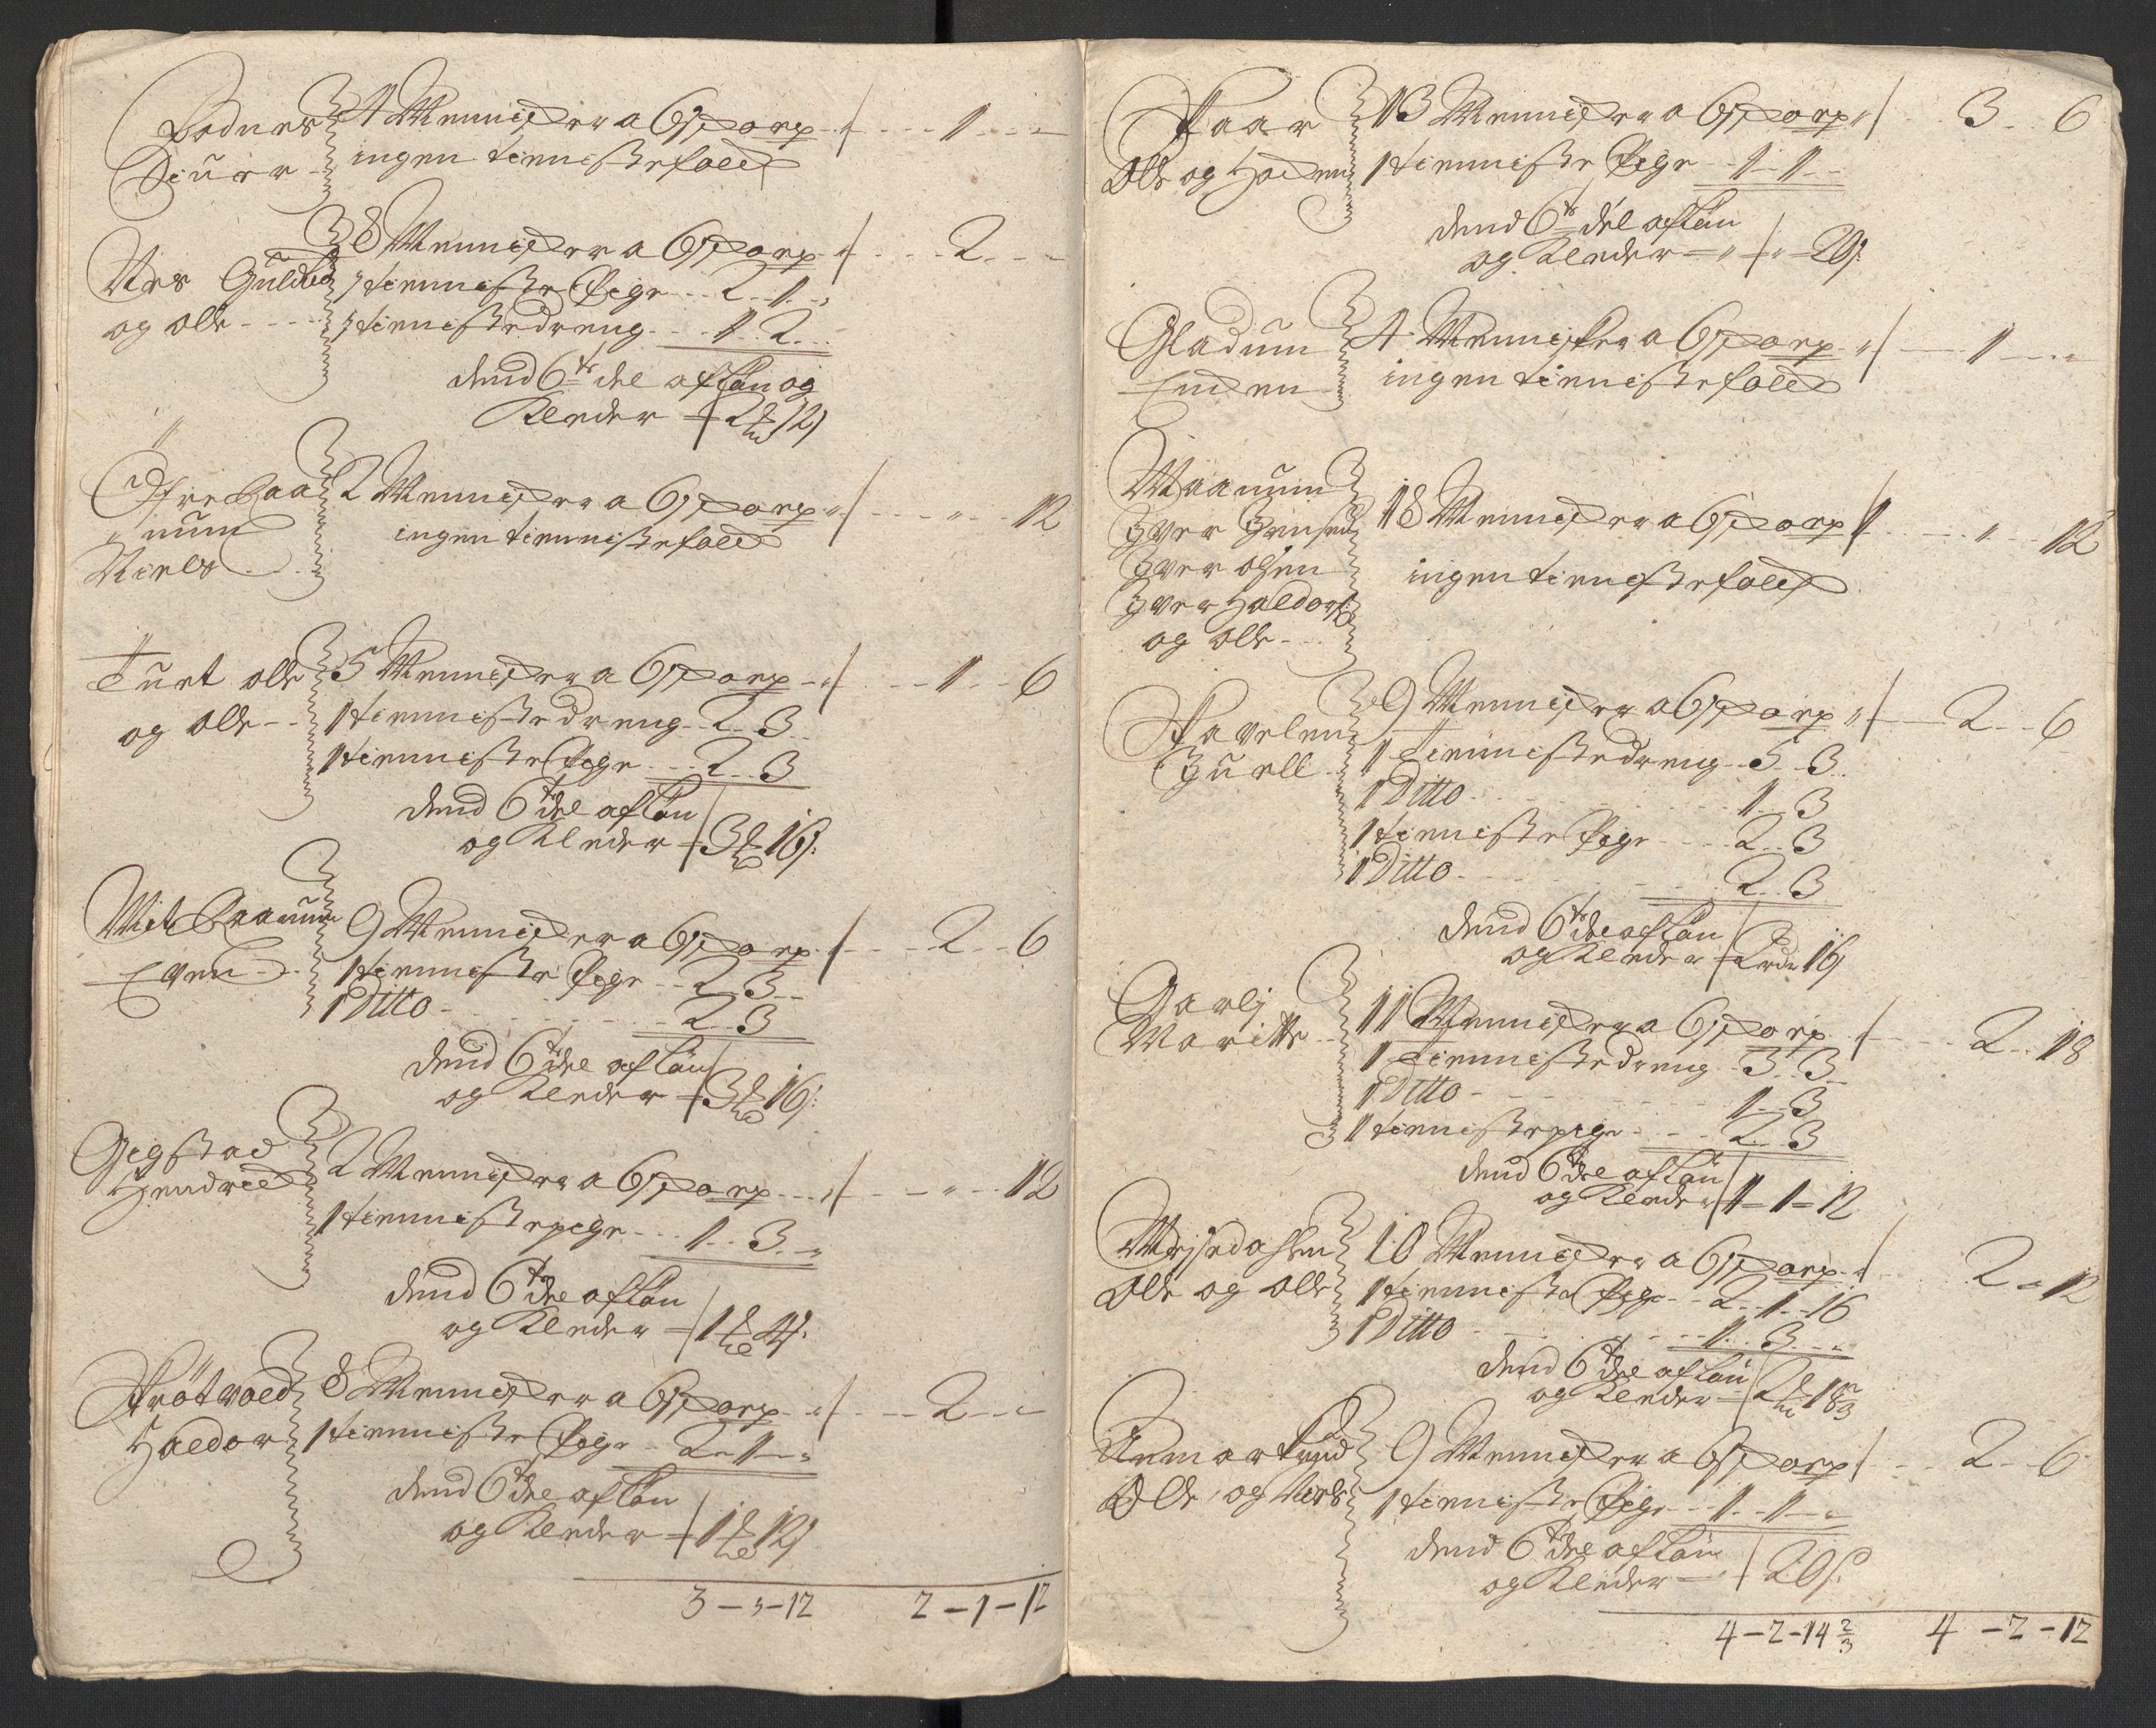 Bodnes
Siurr
4 Mennisker a 6 s̶ er - 1 - -
ingen tienniste folck
Nes Guldb
og olle - - -
8 Mennisker a 6 s̶ er - 2 - -
1 tienniste Pige - - 2 - 1 -
1 tienniste dreng - - 1 - 2 -
dend 6te del af løn og
Kleder - 2 12
Øfre
num
Niels
2 Mennisker a 6 s̶ er - " - 12
ingen tienniste folck
olle
og olle - -
5 Mennisker a 6 s̶ er - 1 - 6
1 tienniste dreng - 2 - 3
1 tienniste Pige - - 2 - 3
dend 6te del af løn
og Kleder - 3 16
Mit
Even
9 Mennisker a 6 s̶ er - 2 - 6
1 tienniste Pige - 2 - 3 -
1 Ditto - 2 - 3
dend 6te del af løn
og Kleder - 3 16
Gigstad
Hendrick
2 Mennisker a 6 s̶ er - " - 12
1 tienniste pige - - 1 - 3 - "
dend 6te del af løn
og Kleder - 1 4
Strøtvold
Haldor
8 Mennisker a 6 s̶ er - 2 - -
1 tienniste Pige - 2 - 1 - "
dend 6te del af løn
og Kleder - 1 12
3 - 3 - 12 2 - 1 - 12
Staar
Olle og
13 Mennisker a 6 s̶ er 3 - 6
1 tienniste Pige - 1 - 1 -
dend 6te del af løn
og Kleder - " - " - 20
Gladum
Enden
4 Mennisker a 6 s̶ er - 1 - "
ingen tienniste folck
Maanum
Iver Jensen
Iver olsen
Iver Haldors:
og olle - -
18 Mennisker a 6 s̶ er 1 - " - 12
ingen tienniste folck
Stavelen
Juell
9 Mennisker a 6 s̶ er - 2 - 6
1 tienniste dreng - 5 - 3
1 Ditto - 1 - 3
1 tienniste Pige - 2 - 3
1 Ditto - 2 - 3
dend 6te del af løn
og Kleder - 2 rdr 16
Garlj
Maritte
11 Mennisker a 6 s̶ er - 2 - 18
1 tienniste dreng - 3 - 3
1 Ditto - 1 - 3
1 tienniste pige - - 2 - 3
dend 6te del af løn
og Kleder 1 - 1 - 12
Olle og olle
10 Mennisker a 6 s̶ er - 2 - 12
1 tienniste Pige - 2 - 1 - 16
1 Ditto - 1 - 3 - "
dend 6te del af løn
og Kleder - 2 18 2/3
Olle og Niels
9 Mennisker a 6 s̶ er - 2 - 6
1 tienniste Pige - 1 - 1 - "
dend 6te del af løn
og Kleder - " 20
4 - 2 - 14 2/3 4 - 2 - 12